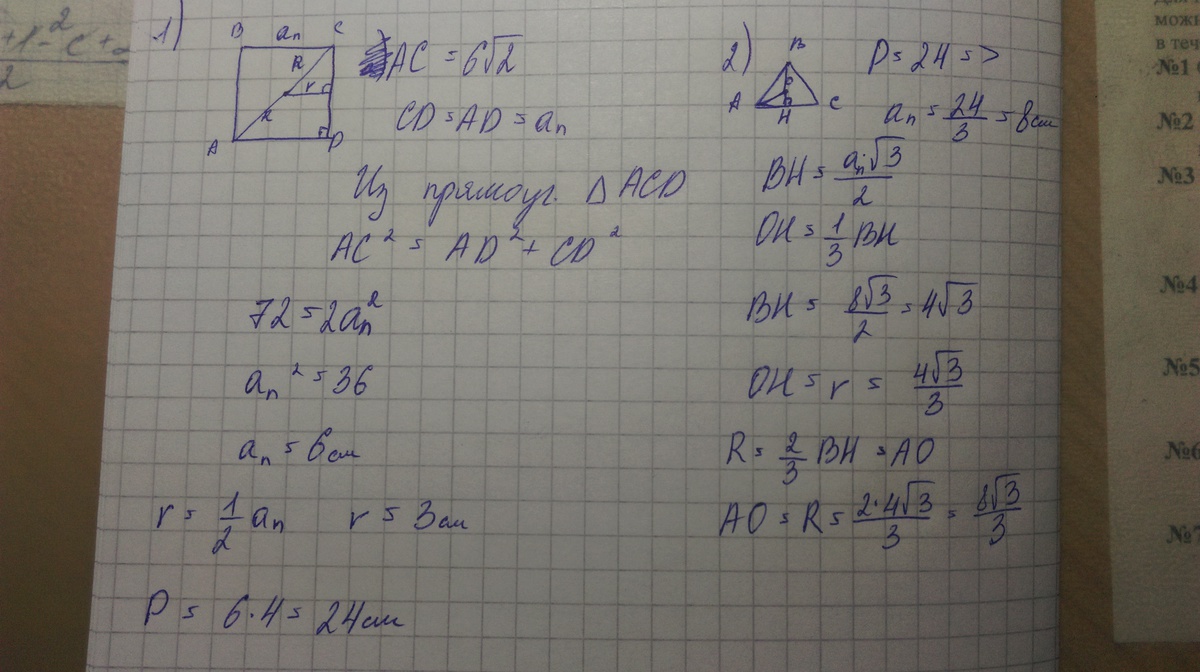 1)
B aₙ C
R
r
R
A D
AC = 6√2
CD = AD = aₙ
Из прямоуг. △ ACD
AC² = AD² + CD²
72 = 2aₙ²
aₙ² = 36
aₙ = 6 см
r = 1/2 aₙ r = 3 см
P = 6·4 = 24 см
2)
B
A C
H
P = 24 =>
aₙ = 24/3 = 8 см
BH = aₙ·√3/2
OH = 1/3 BH
BH = 8√3/2 = 4√3
OH = r = 4√3/3
R = 2/3 BH = AO
AO = R = 2·4√3/3 = 8√3/3
можн
в теч
№1
№2
№3
№4
№5
№6